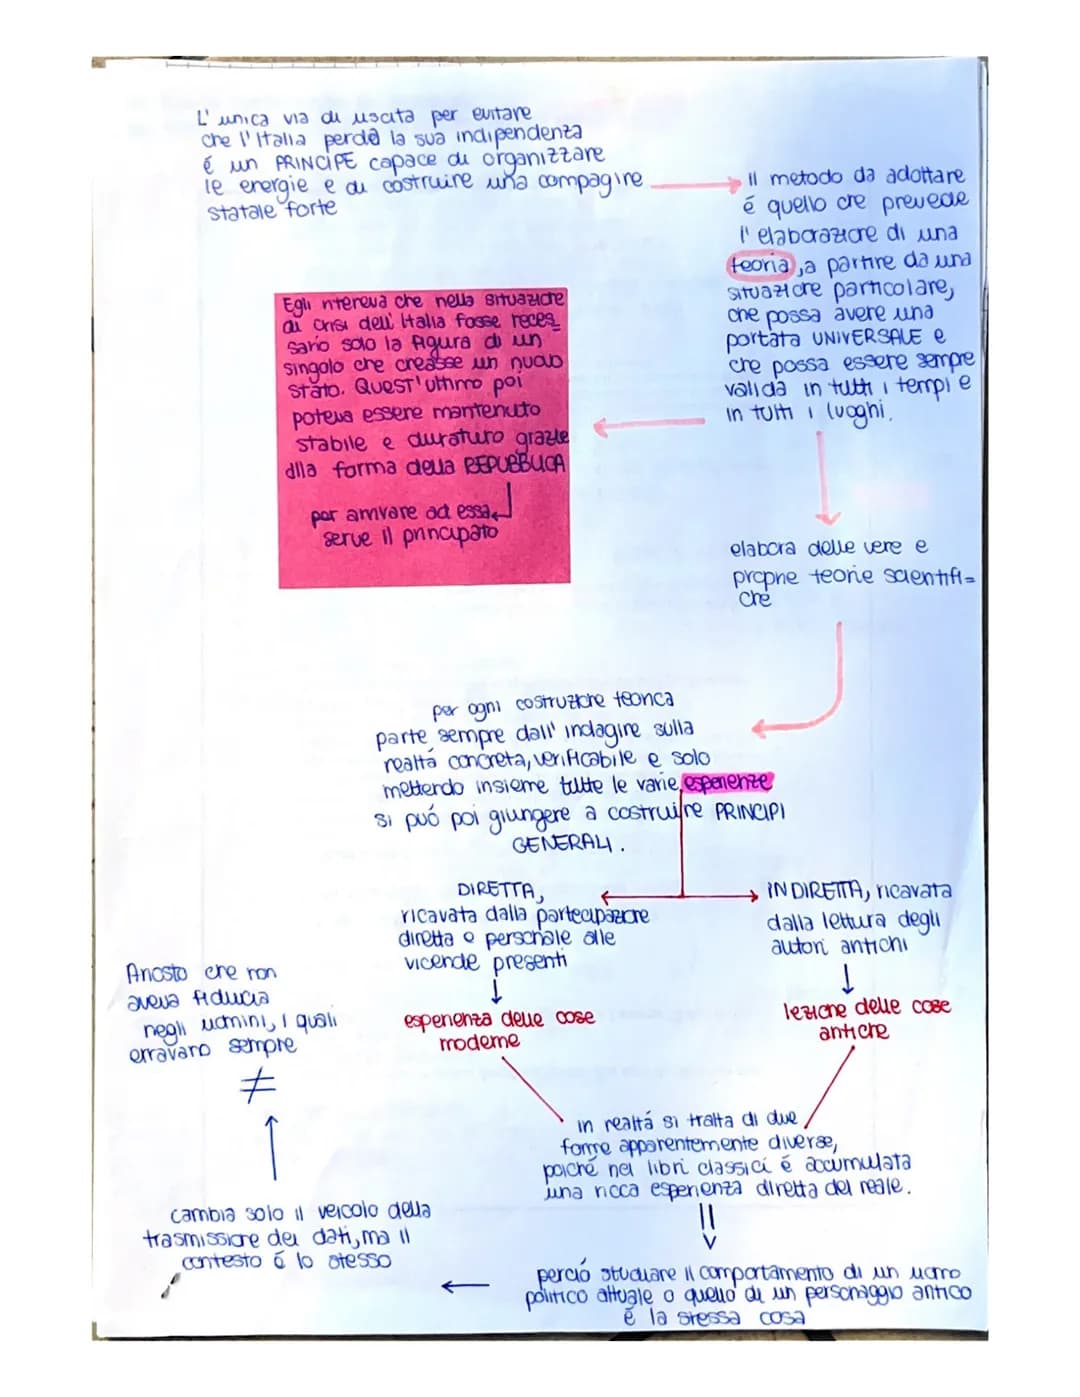 L'unica via di uscita per evitare
che l'Italia perda la sua indipendenza
é un PRINCIPE capace di organizzare
le energie e di costruire una compagine
statale forte
il metodo da adottare
é quello che prevede
l'elaborazione di una
teoria, a partire da una
situazione particolare,
che possa avere una
portata UNIVERSALE e
che possa essere sempre
valida in tutti i tempi e
in tutti i luoghi.
Egli riteneva che nella situazione
di crisi dell'Italia fosse neces
sario solo la figura di un
singolo che creasse un nuovo
stato. Quest'ultimo poi
poteva essere mantenuto
stabile e duraturo grazie
alla forma della REPUBBLICA
per arrivare ad essa
serve il principato
elabora delle vere e
proprie teorie scientifi=
che
per ogni costruzione teorica
parte sempre dall'indagine sulla
realtá concreta, verificabile e solo
mettendo insieme tutte le varie esperienze
si puó poi giungere a costruire PRINCIPI
GENERALI.
DIRETTA,
ricavata dalla partecipazione
diretta e personale alle
vicende presenti
esperienza delle cose
moderne
INDIRETTA, ricavata
dalla lettura degli
autori antichi
lezione delle cose
antiche
Ariosto che non
aveva fiducia
negli uomini, i quali
erravano sempre
≠
in realtá si tratta di due
forme apparentemente diverse,
poiché nei libri classici é accumulata
una ricca esperienza diretta del reale.
cambia solo il veicolo della
trasmissione dei dati, ma il
contesto é lo stesso
perció studiare il comportamento di un uomo
politico attuale o quello di un personaggio antico
é la stessa cosa